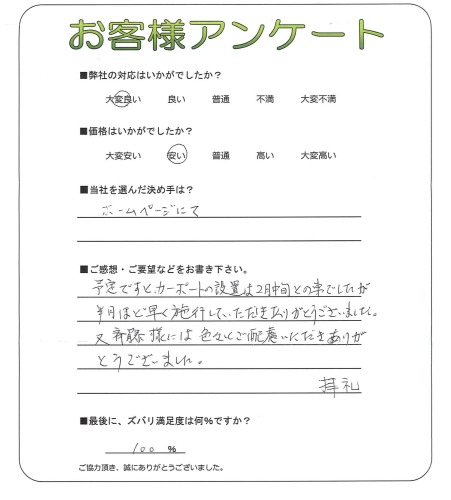 お客様アンケート
■弊社の対応はいかがでしたか？
大変良い　良い　普通　不満　大変不満
■価格はいかがでしたか？
大変安い　安い　普通　高い　大変高い
■当社を選んだ決め手は？
ホームページにて
■ご感想・ご要望などをお書き下さい。
予定ですと、カーポートの設置は2月中旬との事でしたが
半月ほど早く施行していただきありがとうございました。
又斉藤様には色々とご配慮いただきありが
とうございました。
拝礼
■最後に、ズバリ満足度は何%ですか？
100 %
ご協力頂き、誠にありがとうございました。